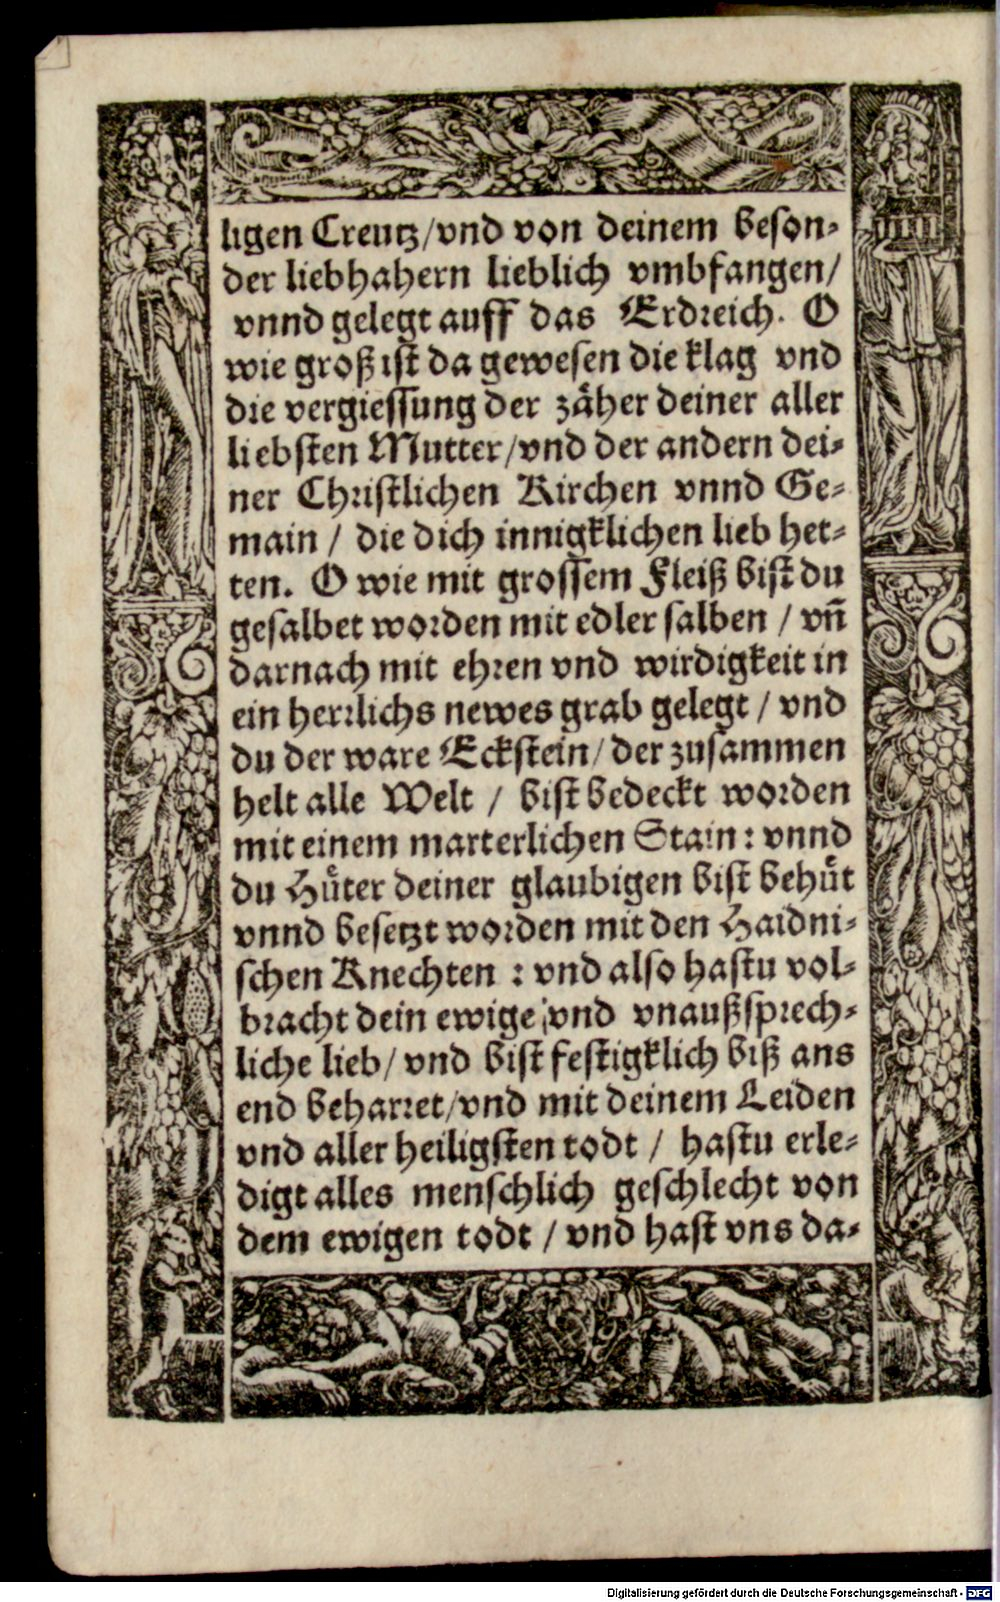 ligen Creutz/vnd von deinem beson-
der liebhahern lieblich vmbfangen/
vnnd gelegt auff das Erdreich. O
wie groß ist da gewesen die klag vnd
die vergiessung der zäher deiner aller
liebsten Mutter/vnd der andern dei-
ner Christlichen Kirchen vnnd Ge-
main / die dich innigklichen lieb het-
ten. O wie mit grossem Fleiß bist du
gesalbet worden mit edler salben / vñ
darnach mit ehren vnd wirdigkeit in
ein herrlichs newes grab gelegt / vnd
du der ware Eckstein/der zusammen
helt alle Welt / bist bedeckt worden
mit einem marterlichen Stain: vnnd
du Hüter deiner glaubigen bist behüt
vnnd besetzt worden mit den Haidni-
schen Knechten : vnd also hastu vol-
bracht dein ewige/vnd vnaußsprech-
liche lieb/ vnd bist festigklich biß ans
end beharret/vnd mit deinem Leiden
vnd aller heiligsten todt / hastu erle-
digt alles menschlich geschlecht von
dem ewigen todt / vnd hast vns da-
Digitalisierung gefördert durch die Deutsche Forschungsgemeinschaft - DFG